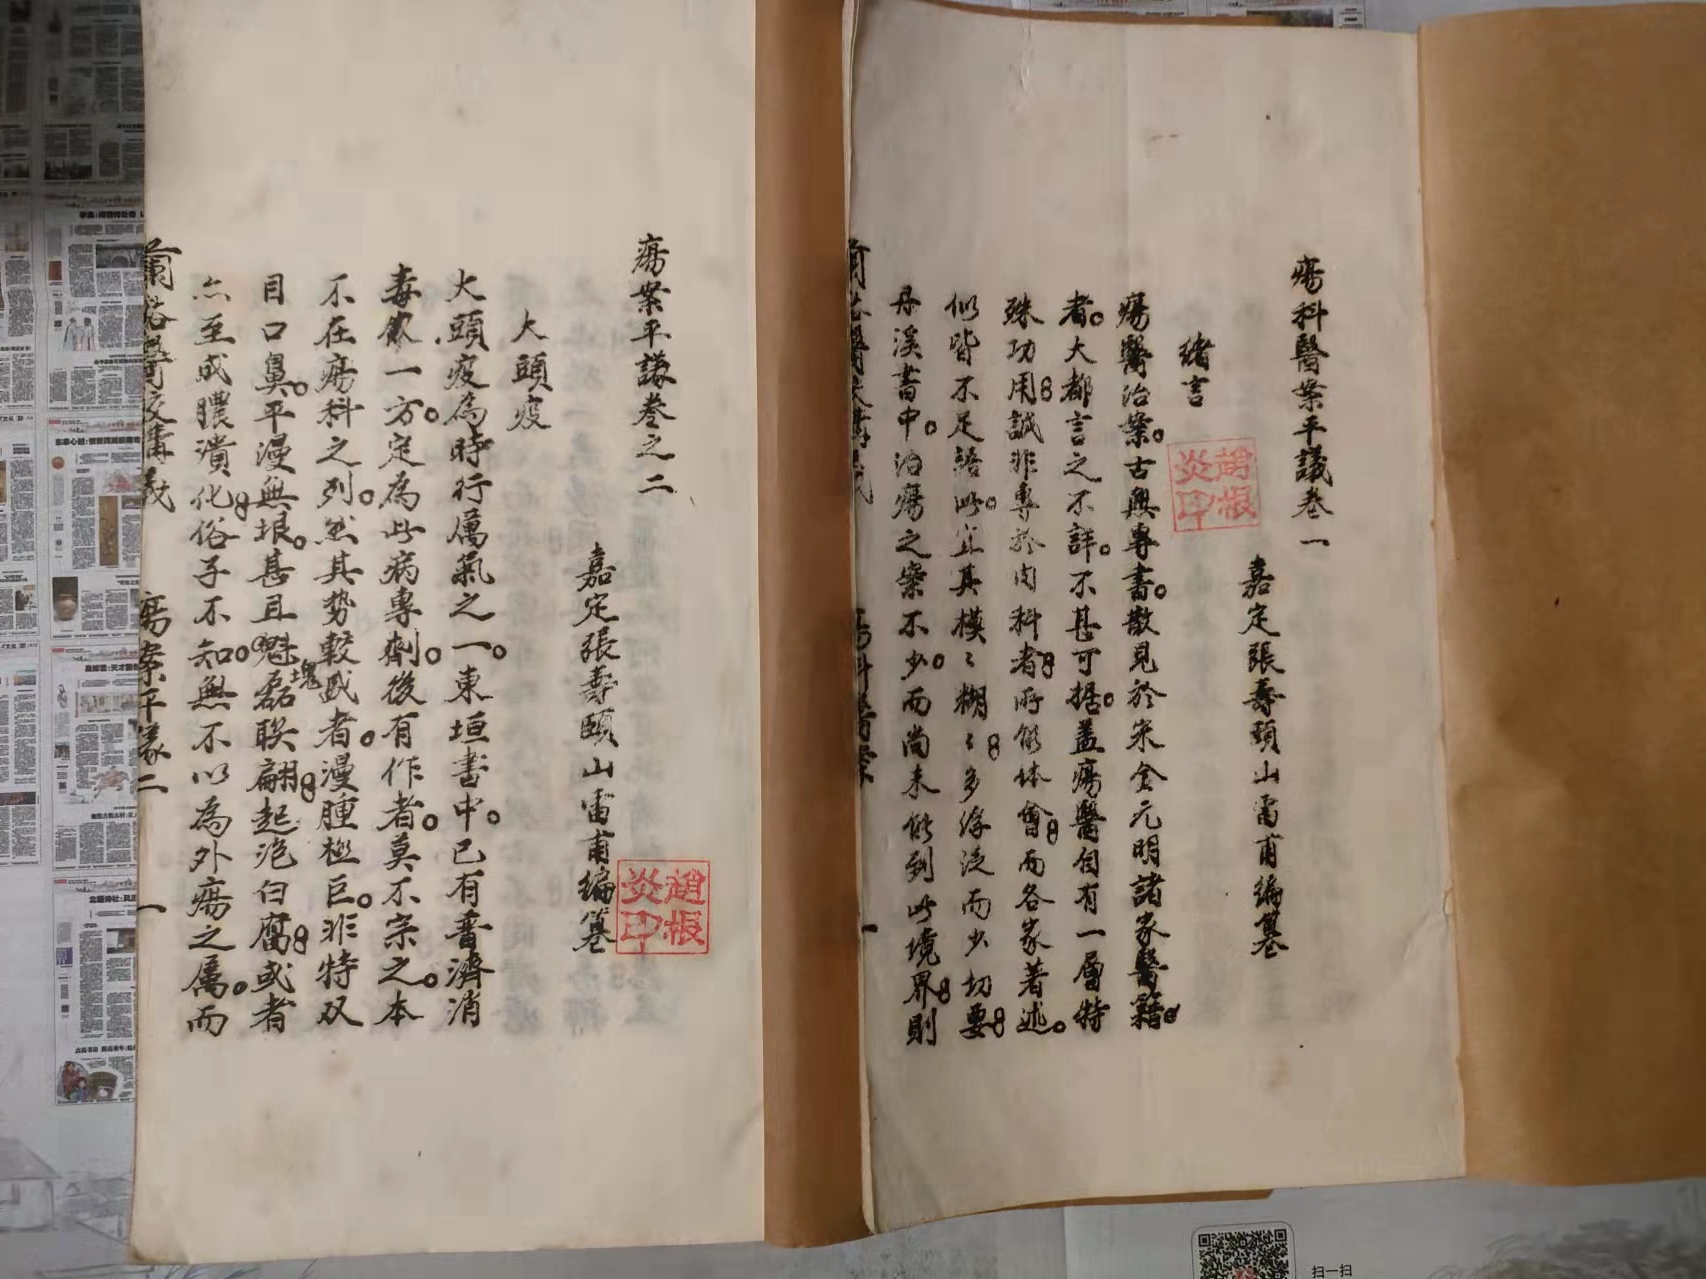 瘍科醫案平議卷一
嘉定張壽頤山雷甫編纂
緒言
趙根炎印
瘍醫治案。古無專書。散見於宋金元明諸家醫籍
者。大都言之不詳。不甚可据。盖瘍醫自有一層特
殊功用。誠非專於內科者。所能体會。而各家著述。
似皆不足語此。宜其模々糊々。多浮泛而少切要。
丹溪書中。治瘍之案不少。而尚未能到此境界。則
瘍科醫案
一
瘍案平議卷之二
嘉定張壽頤山雷甫編纂
趙根炎印
大頭疫
大頭疫為時行厲氣之一。東垣書中。已有普濟消
毒飲一方。定為此病專劑。後有作者。莫不宗之。本
不在瘍科之列。然其势較盛者。漫腫極巨。非特双
目口鼻。平漫無垠。甚且魁磊联翩。起泡白腐。或者
塊
亦至成膿潰化。俗子不知。無不以為外瘍之属。而
瘍案平議二
一
扫一扫